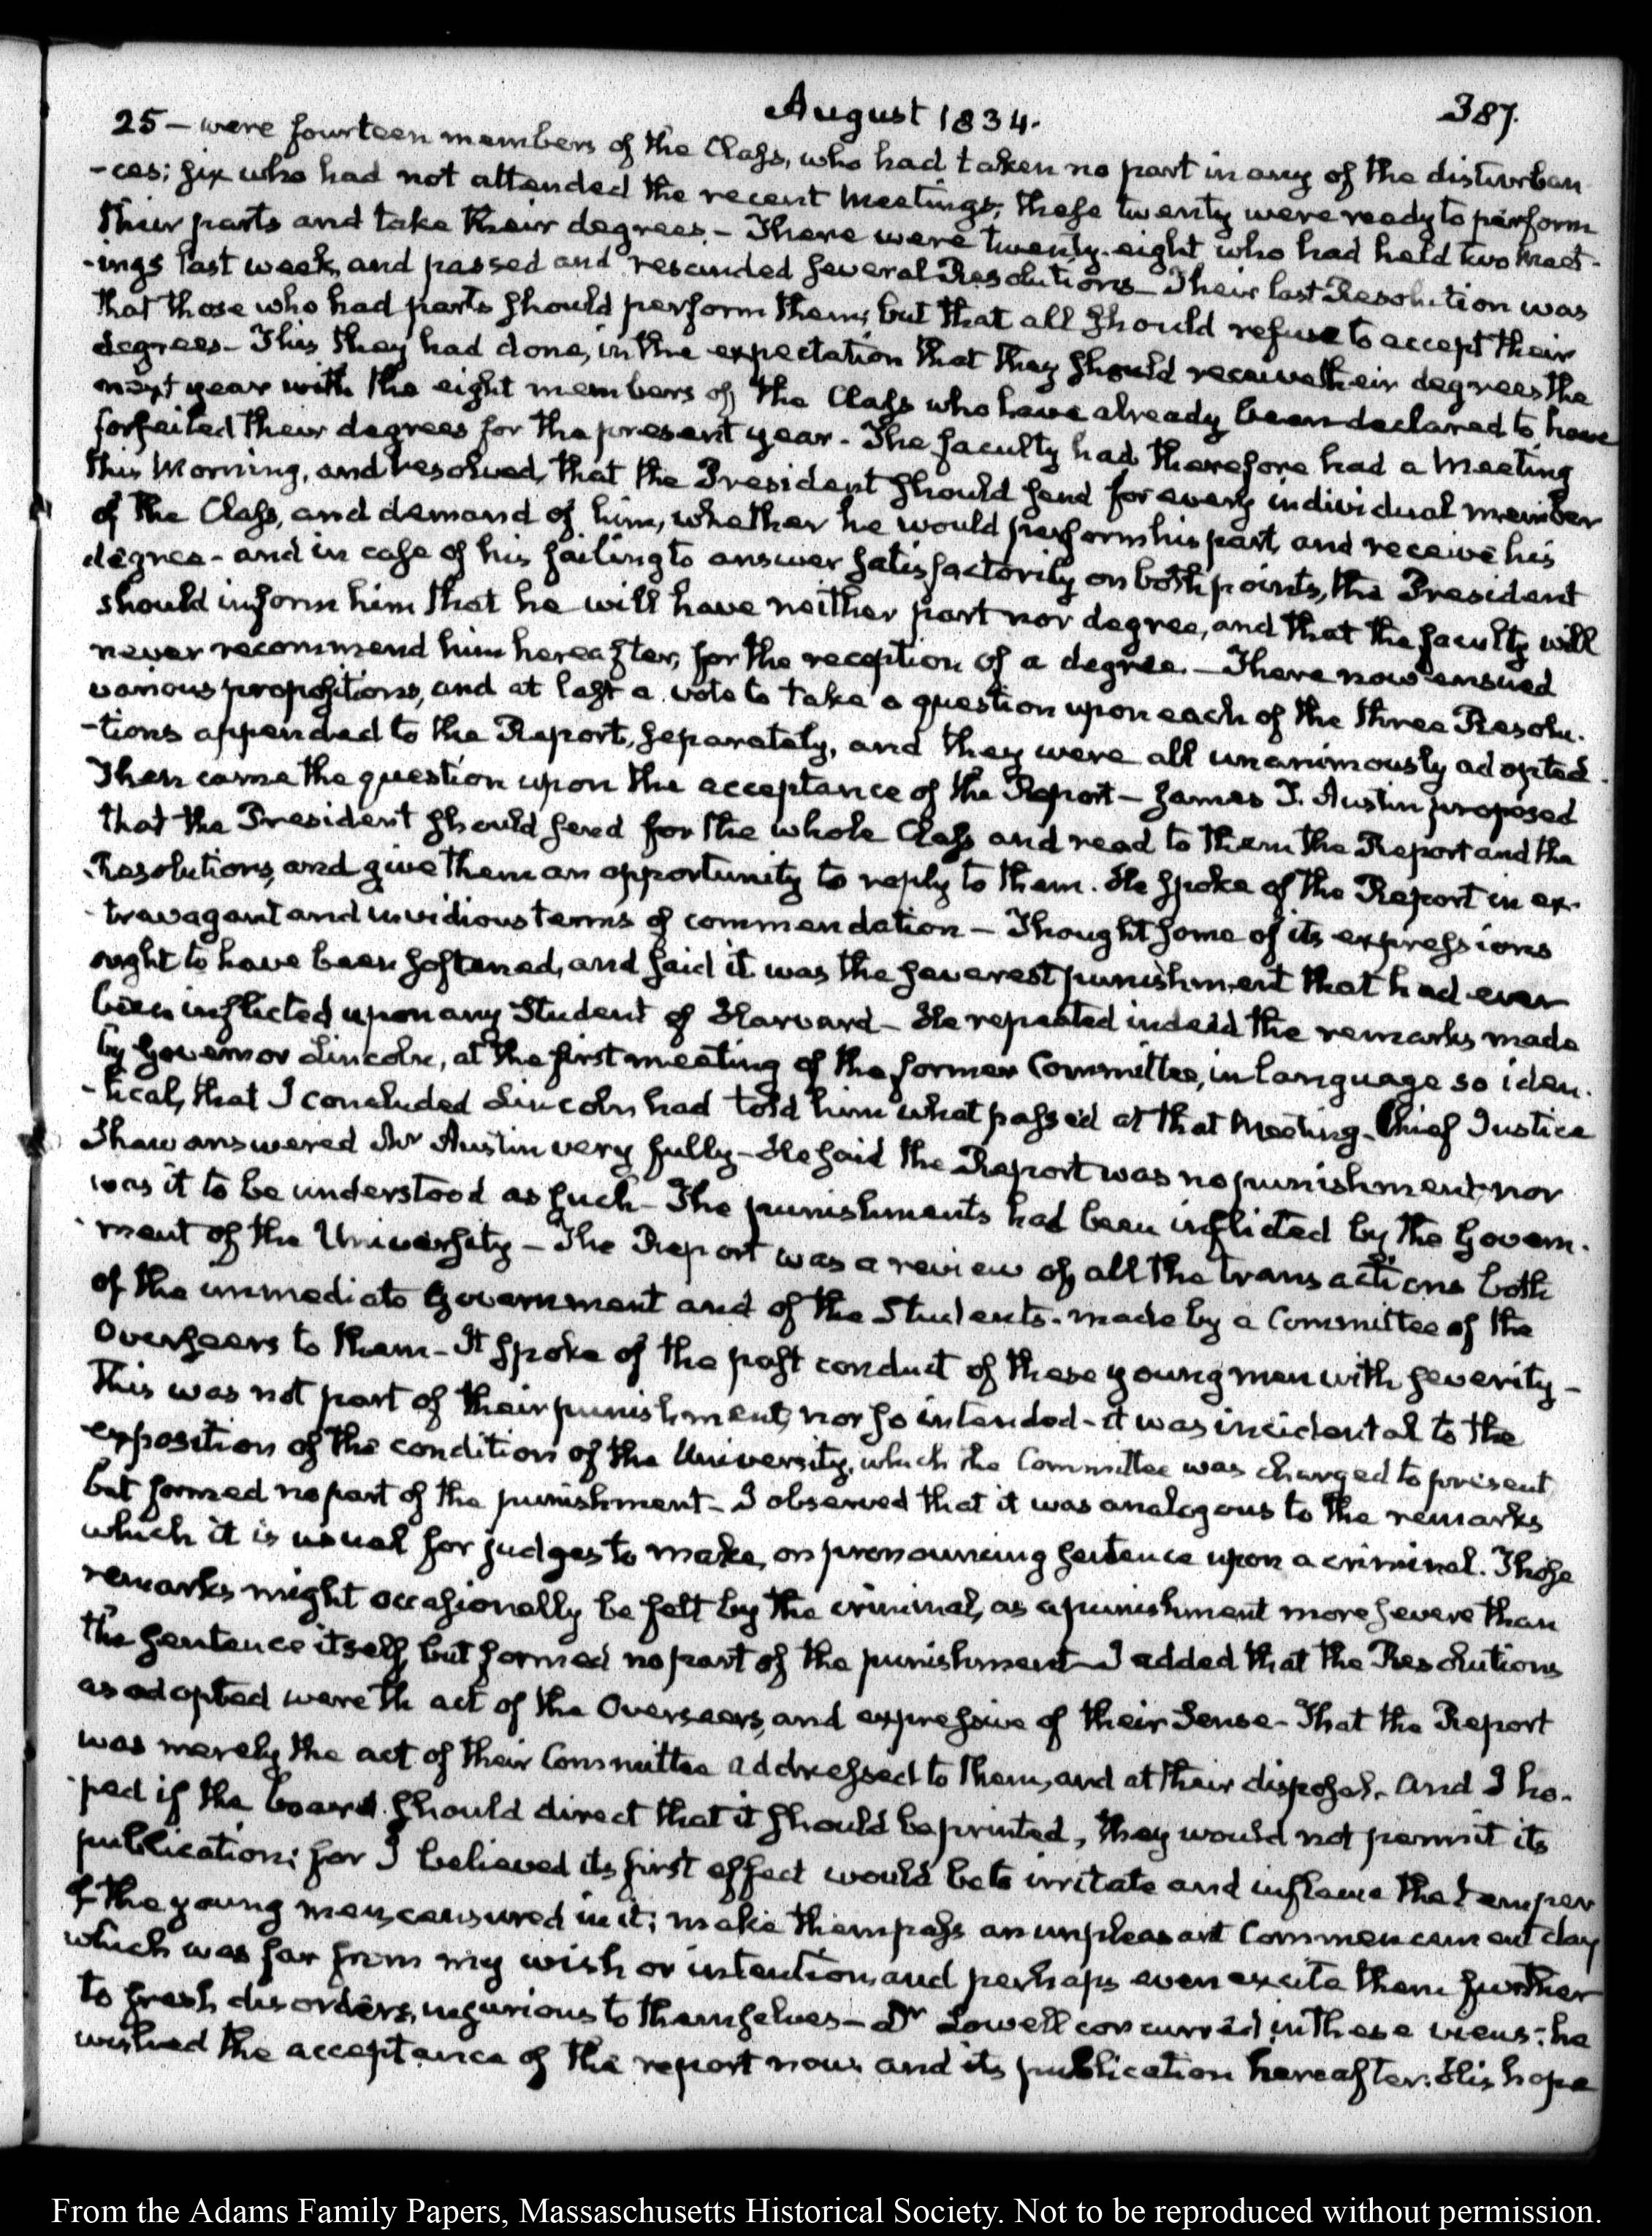 August 1834.
387.
25 – were fourteen members of the Class, who had taken no part in any of the disturban
-ces; six who had not attended the recent meetings; these twenty were ready to perform
their parts and take their degrees. – There were twenty-eight who had held two meet-
-ings last week, and passed and rescinded several Resolutions – Their last Resolution was
that those who had parts should perform them; but that all should refuse to accept their
degrees – This they had done, in the expectation that they should receive their degrees the
next year with the eight members of the Class who have already been declared to have
forfeited their degrees for the present year – The faculty had therefore had a meeting
this Morning, and resolved, that the President should send for every individual member
of the Class, and demand of him, whether he would perform his part, and receive his
degree – and in case of his failing to answer satisfactorily on both points, the President
should inform him that he will have neither part nor degree, and that the faculty will
never recommend him hereafter, for the reception of a degree. – There now ensued
various propositions, and at last a vote to take a question upon each of the three Resolu-
-tions appended to the Report, separately, and they were all unanimously adopted.
Then came the question upon the acceptance of the Report – James T. Austin proposed
that the President should send for the whole Class and read to them the Report and the
Resolutions, and give them an opportunity to reply to them. He spoke of the Report in ex-
-travagant and invidious terms of commendation – Thought some of its expressions
ought to have been softened, and said it was the severest punishment that had ever
been inflicted upon any Student of Harvard – He repeated indeed the remarks made
by Governor Lincoln, at the first meeting of the former Committee, in language so iden-
-tical, that I concluded Lincoln had told him what passed at that Meeting. Chief Justice
Shaw answered Mr Austin very fully – He said the Report was no punishment, nor
was it to be understood as such – The punishments had been inflicted by the Govern-
-ment of the University – The Report was a review of all the transactions both
of the immediate Government and of the Students. made by a Committee of the
Overseers to them – It spoke of the past conduct of these young men with severity –
This was not part of their punishment, nor so intended – it was incidental to the
exposition of the condition of the University, which the Committee was charged to present
but formed no part of the punishment – I observed that it was analogous to the remarks
which it is usual for judges to make, on pronouncing sentence upon a criminal. Those
remarks might occasionally be felt by the criminal, as a punishment more severe than
the sentence itself, but formed no part of the punishment – I added that the Resolutions
as adopted were th act of the Overseers, and expressive of their Sense – That the Report
was merely the act of their Committee addressed to them, and at their disposal. and I ho-
-ped if the board should direct that it should be printed, they would not permit its
publication; for I believed its first effect would be to irritate and inflame the temper
of the young men, censured in it; make them pass an unpleasant Commencement day
which was far from my wish or intention, and perhaps even excite them further
to fresh disorders, injurious to themselves – Dr Lowell concurred in these views; he
wished the acceptance of the report now, and its publication hereafter. His hope
From the Adams Family Papers, Massachusetts Historical Society. Not to be reproduced without permission.